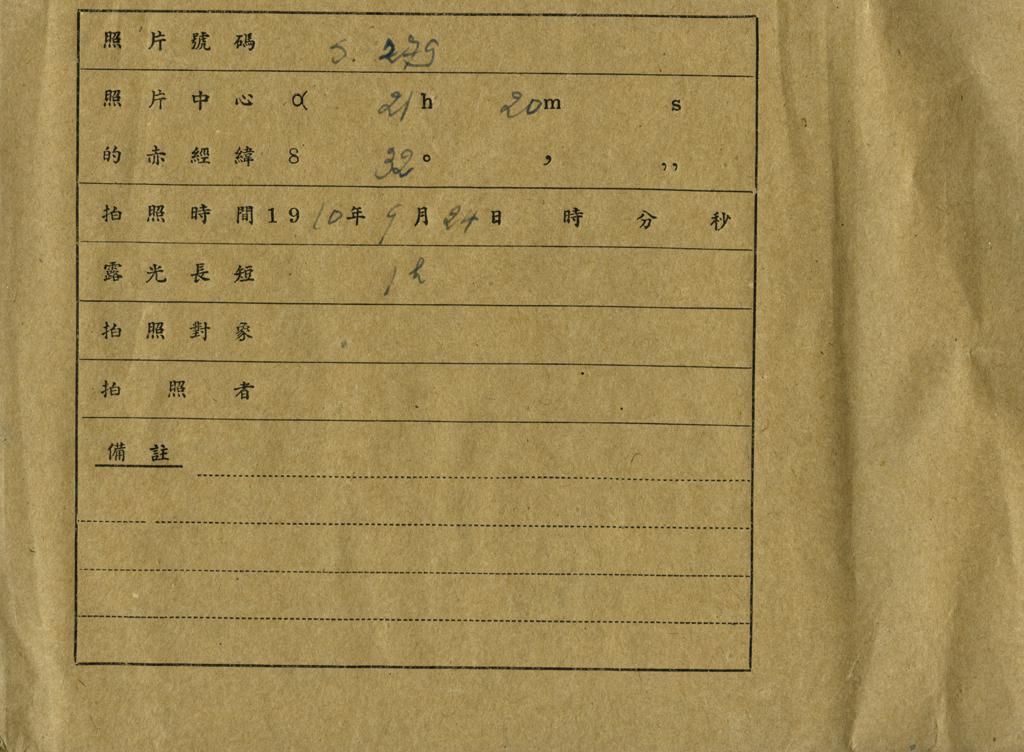 照片號碼 S. 279
照片中心 α 21h 20m s
的赤經緯 δ 32° ′ ″
拍照時間1910年9月24日 時 分 秒
露光長短 1h
拍照對象
拍照者
備註